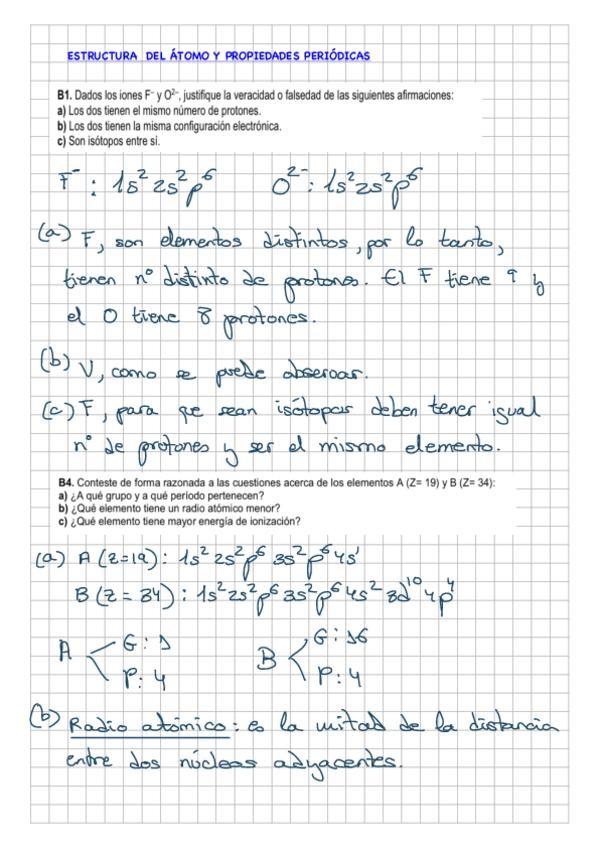 ESTRUCTURA DEL ÁTOMO Y PROPIEDADES PERIÓDICAS
B1. Dados los iones F⁻ y O²⁻, justifique la veracidad o falsedad de las siguientes afirmaciones:
a) Los dos tienen el mismo número de protones.
b) Los dos tienen la misma configuración electrónica.
c) Son isótopos entre sí.
F⁻ : 1s² 2s² p⁶ O²⁻ : 1s² 2s² p⁶
(a) F, son elementos distintos, por lo tanto,
tienen nº distinto de protones. El F tiene 9 y
el O tiene 8 protones.
(b) V, como se puede observar.
(c) F, para que sean isótopos deben tener igual
nº de protones y ser el mismo elemento.
B4. Conteste de forma razonada a las cuestiones acerca de los elementos A (Z= 19) y B (Z= 34):
a) ¿A qué grupo y a qué período pertenecen?
b) ¿Qué elemento tiene un radio atómico menor?
c) ¿Qué elemento tiene mayor energía de ionización?
(a) A (Z=19) : 1s² 2s² p⁶ 3s² p⁶ 4s¹
B (Z = 34) : 1s² 2s² p⁶ 3s² p⁶ 4s² 3d¹⁰ 4p⁴
A G: 1 B G: 16
P: 4 P: 4
(b) Radio atómico : es la mitad de la distancia
entre dos núcleos adyacentes.